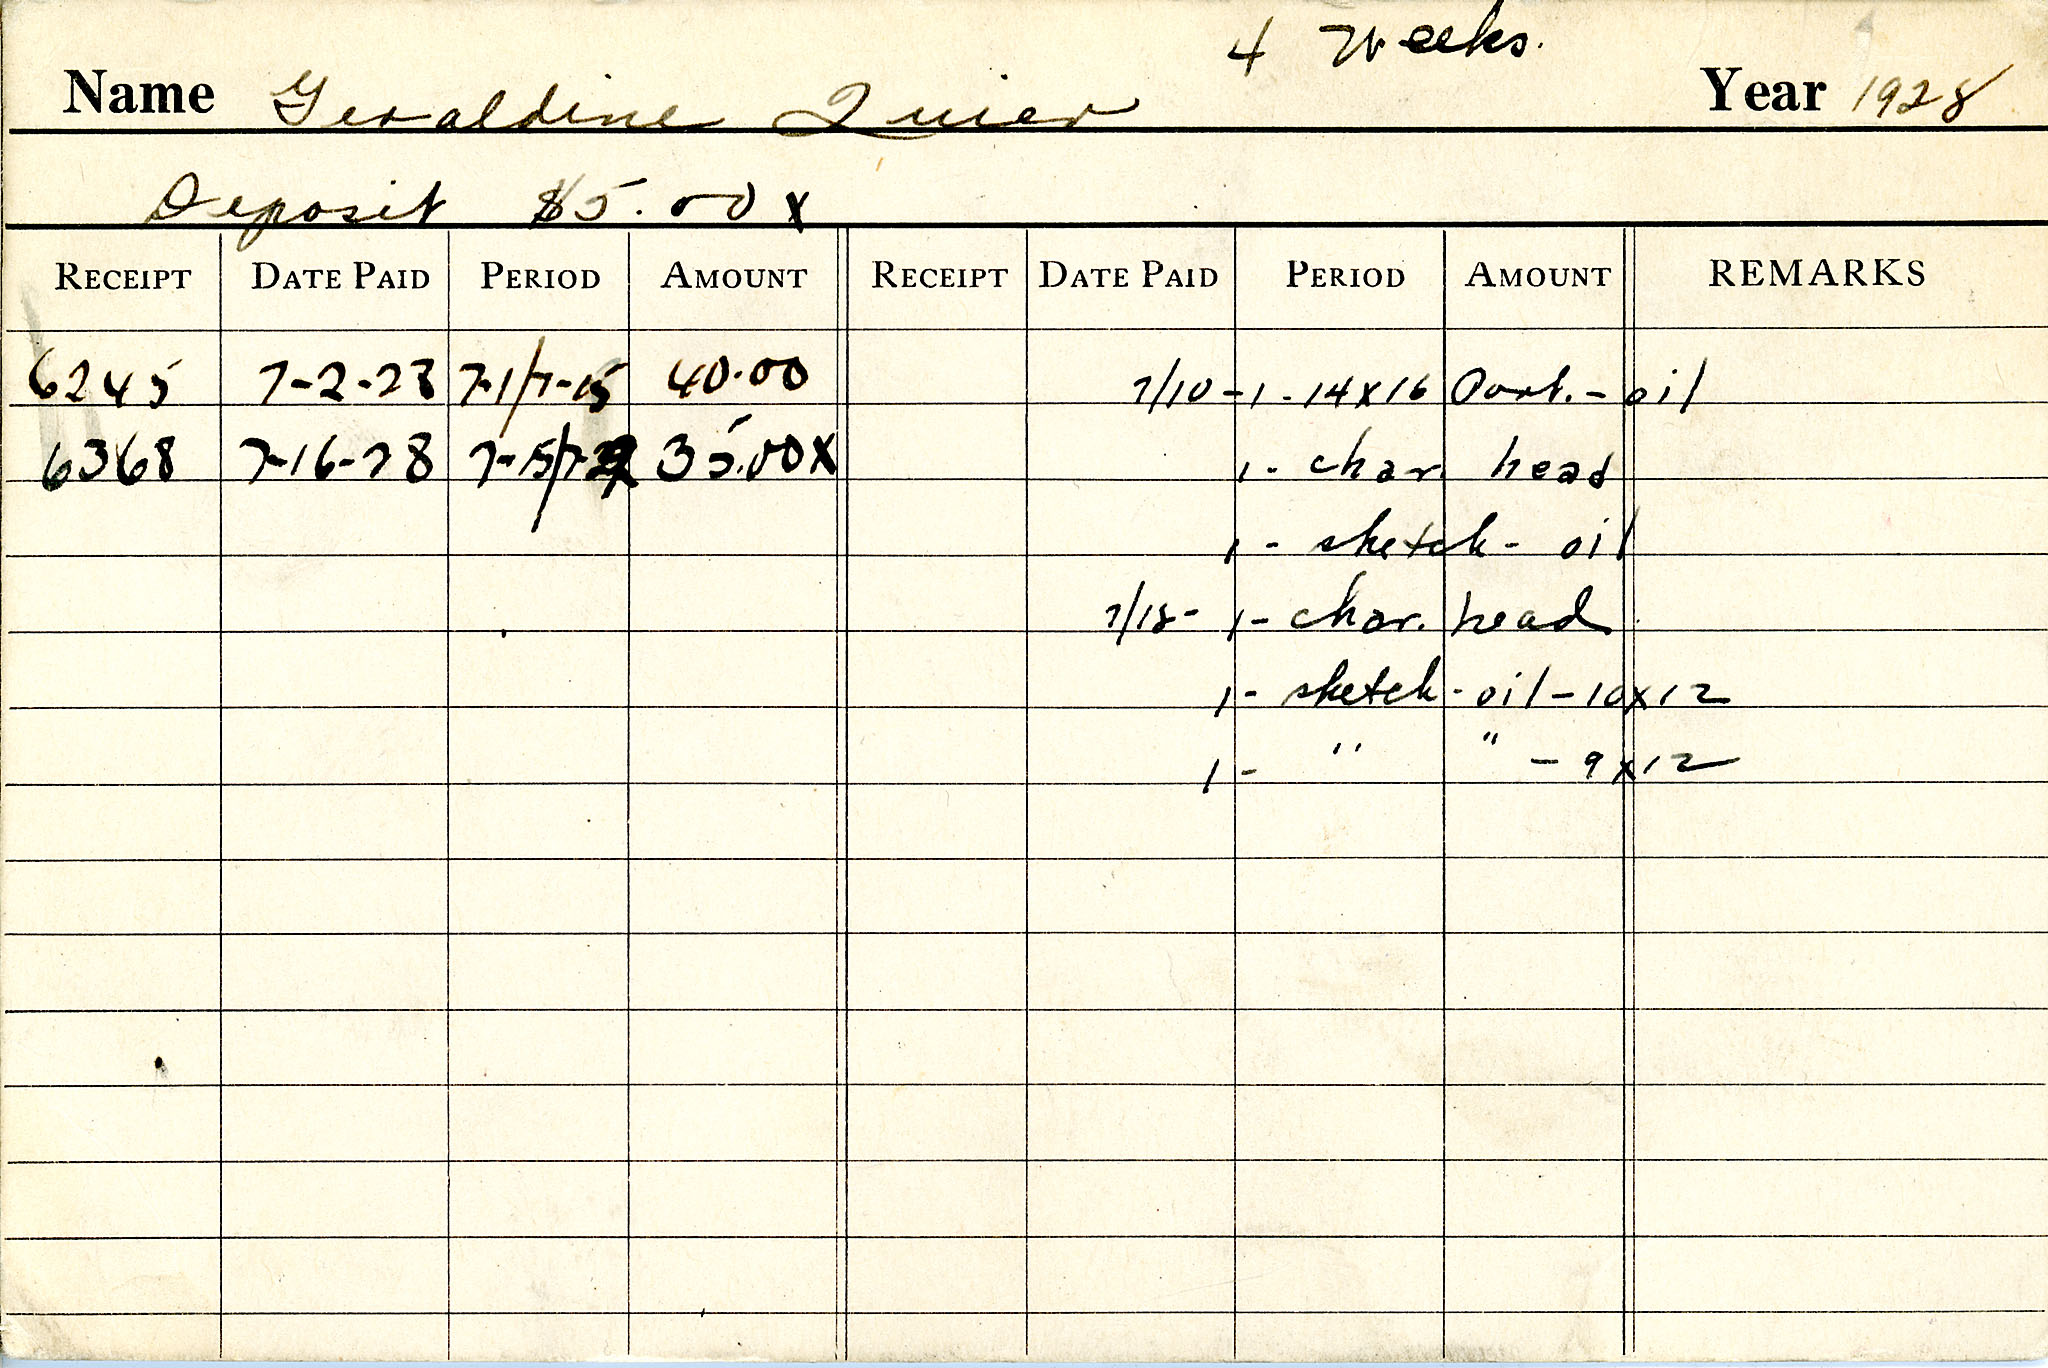 4 Weeks.
Name Geraldine Quier Year 1928
Deposit $5.00 x
RECEIPT DATE PAID PERIOD AMOUNT RECEIPT DATE PAID PERIOD AMOUNT REMARKS
6245 7-2-28 7-1/7-15 40.00 7/10 - 1 - 14x16 Port. - oil
6368 7-16-28 7-15/7-29 35.00X 1 - char. head
1 - sketch - oil
7/18 - 1 - char. head
1 - sketch - oil - 10x12
1 - " " - 9x12